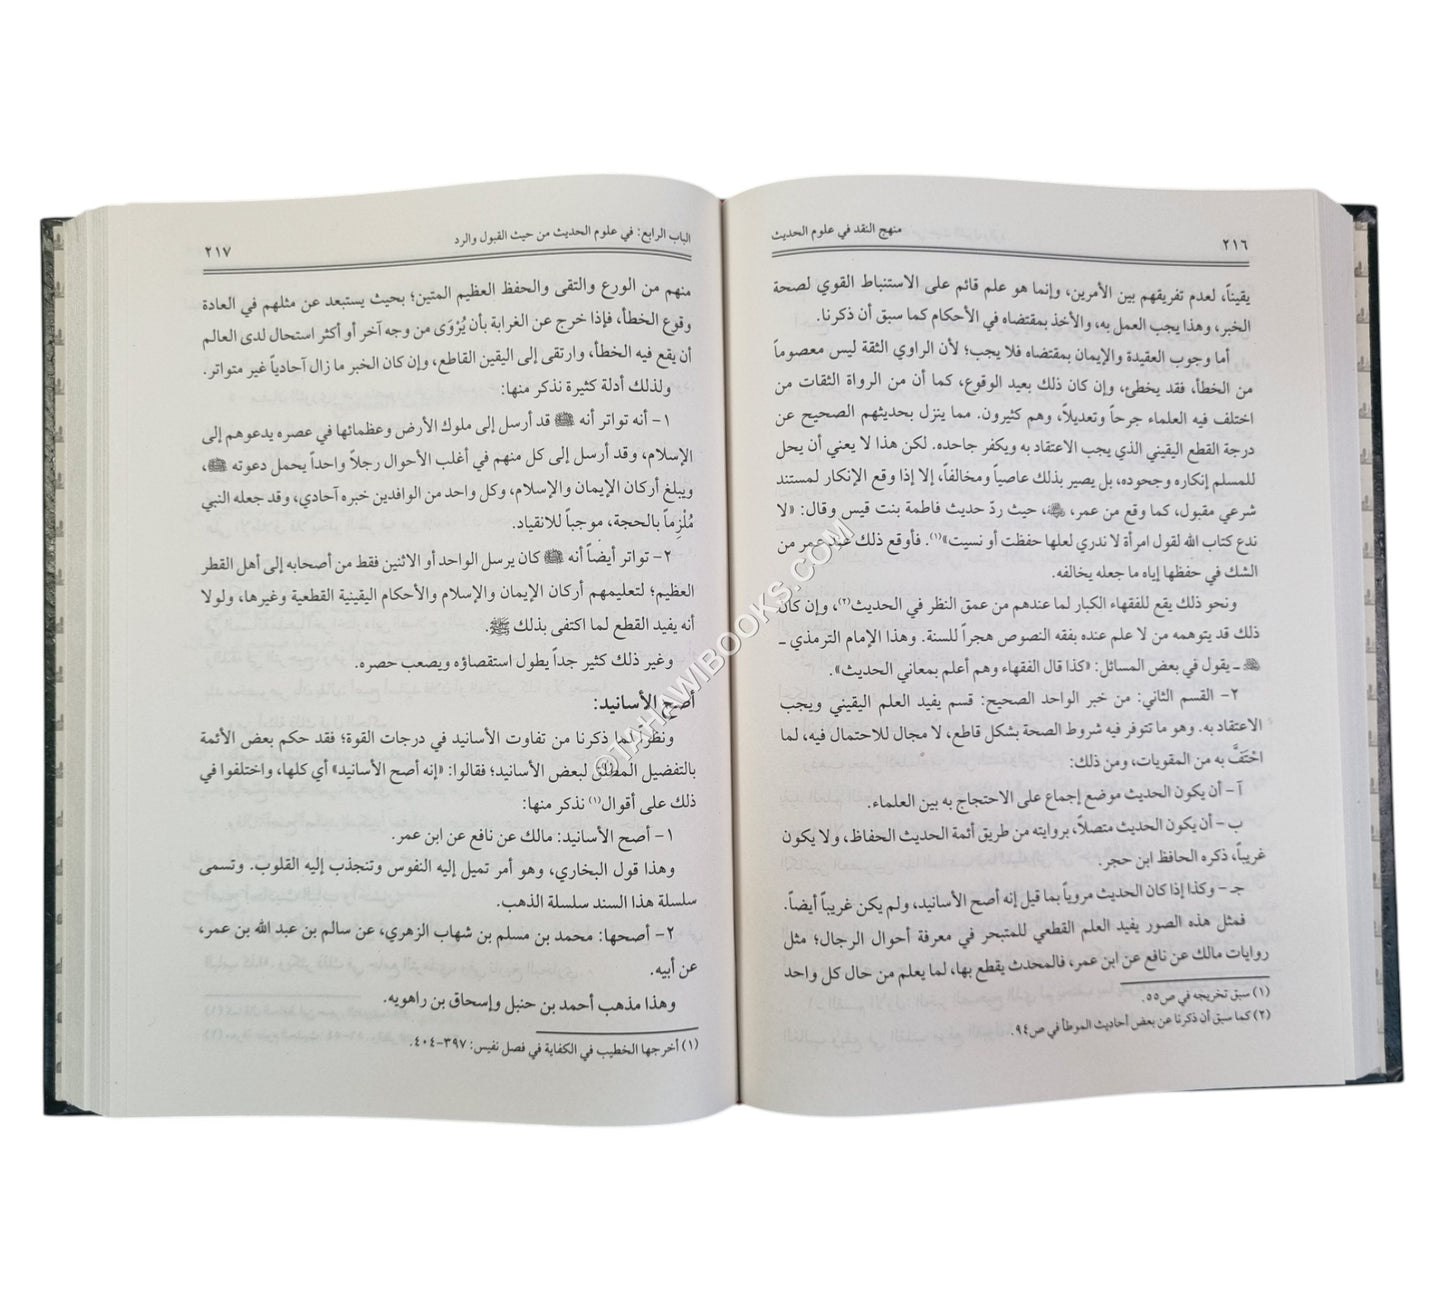 ٢١٦
منهج النقد في علوم الحديث
يقيناً، لعدم تفريقهم بين الأمرين، وإنما هو علم قائم على الاستنباط القوي لصحة
الخبر، وهذا يجب العمل به، والأخذ بمقتضاه في الأحكام كما سبق أن ذكرنا.
أما وجوب العقيدة والإيمان بمقتضاه فلا يجب؛ لأن الراوي الثقة ليس معصوماً
من الخطأ، فقد يخطئ، وإن كان ذلك بعيد الوقوع، كما أن من الرواة الثقات من
اختلف فيه العلماء جرحاً وتعديلاً، وهم كثيرون. مما ينزل بحديثهم الصحيح عن
درجة القطع اليقيني الذي يجب الاعتقاد به ويكفر جاحده. لكن هذا لا يعني أن يحل
للمسلم إنكاره وجحوده، بل يصير بذلك عاصياً ومخالفاً، إلا إذا وقع الإنكار لمستند
شرعي مقبول، كما وقع من عمر، ﷺ، حيث ردّ حديث فاطمة بنت قيس وقال: «لا
ندع كتاب الله لقول امرأة لا ندري لعلها حفظت أو نسيت»(١). فأوقع ذلك عند عمر من
الشك في حفظها إياه ما جعله يخالفه.
ونحو ذلك يقع للفقهاء الكبار لما عندهم من عمق النظر في الحديث(٢)، وإن كان
ذلك قد يتوهمه من لا علم عنده بفقه النصوص هجراً للسنة. وهذا الإمام الترمذي ـ
ـ يقول في بعض المسائل: «كذا قال الفقهاء وهم أعلم بمعاني الحديث».
٢- القسم الثاني: من خبر الواحد الصحيح: قسم يفيد العلم اليقيني ويجب
الاعتقاد به. وهو ما تتوفر فيه شروط الصحة بشكل قاطع، لا مجال للاحتمال فيه، لما
احْتَفَّ به من المقويات، ومن ذلك:
آ- أن يكون الحديث موضع إجماع على الاحتجاج به بين العلماء.
ب- أن يكون الحديث متصلاً، بروايته من طريق أئمة الحديث الحفاظ، ولا يكون
غريباً، ذكره الحافظ ابن حجر.
جـ- وكذا إذا كان الحديث مروياً بما قيل إنه أصح الأسانيد، ولم يكن غريباً أيضاً.
فمثل هذه الصور يفيد العلم القطعي للمتبحر في معرفة أحوال الرجال؛ مثل
روايات مالك عن نافع عن ابن عمر، فالمحدث يقطع بها، لما يعلم من حال كل واحد
(١) سبق تخريجه في ص٥٥.
(٢) كما سبق أن ذكرنا عن بعض أحاديث الموطأ في ص٩٤.
الباب الرابع: في علوم الحديث من حيث القبول والرد
٢١٧
منهم من الورع والتقى والحفظ العظيم المتين؛ بحيث يستبعد عن مثلهم في العادة
وقوع الخطأ، فإذا خرج عن الغرابة بأن يُرْوَى من وجه آخر أو أكثر استحال لدى العالم
أن يقع فيه الخطأ، وارتقى إلى اليقين القاطع، وإن كان الخبر ما زال آحادياً غير متواتر.
ولذلك أدلة كثيرة نذكر منها:
١- أنه تواتر أنه ﷺ قد أرسل إلى ملوك الأرض وعظمائها في عصره يدعوهم إلى
الإسلام، وقد أرسل إلى كل منهم في أغلب الأحوال رجلاً واحداً يحمل دعوته ﷺ،
ويبلغ أركان الإيمان والإسلام، وكل واحد من الوافدين خبره آحادي، وقد جعله النبي
مُلْزِماً بالحجة، موجباً للانقياد.
٢- تواتر أيضاً أنه ﷺ كان يرسل الواحد أو الاثنين فقط من أصحابه إلى أهل القطر
العظيم؛ لتعليمهم أركان الإيمان والإسلام والأحكام اليقينية القطعية وغيرها، ولولا
أنه يفيد القطع لما اكتفى بذلك ﷺ.
وغير ذلك كثير جداً يطول استقصاؤه ويصعب حصره.
أصح الأسانيد:
ونظراً لما ذكرنا من تفاوت الأسانيد في درجات القوة؛ فقد حكم بعض الأئمة
بالتفضيل المطلق لبعض الأسانيد؛ فقالوا: «إنه أصح الأسانيد» أي كلها، واختلفوا في
ذلك على أقوال(١) نذكر منها:
١- أصح الأسانيد: مالك عن نافع عن ابن عمر.
وهذا قول البخاري، وهو أمر تميل إليه النفوس وتنجذب إليه القلوب. وتسمى
سلسلة هذا السند سلسلة الذهب.
٢- أصحها: محمد بن مسلم بن شهاب الزهري، عن سالم بن عبد الله بن عمر،
عن أبيه.
وهذا مذهب أحمد بن حنبل وإسحاق بن راهويه.
(١) أخرجها الخطيب في الكفاية في فصل نفيس: ٣٩٧-٤٠٤.
©TAHAWIBOOKS.COM